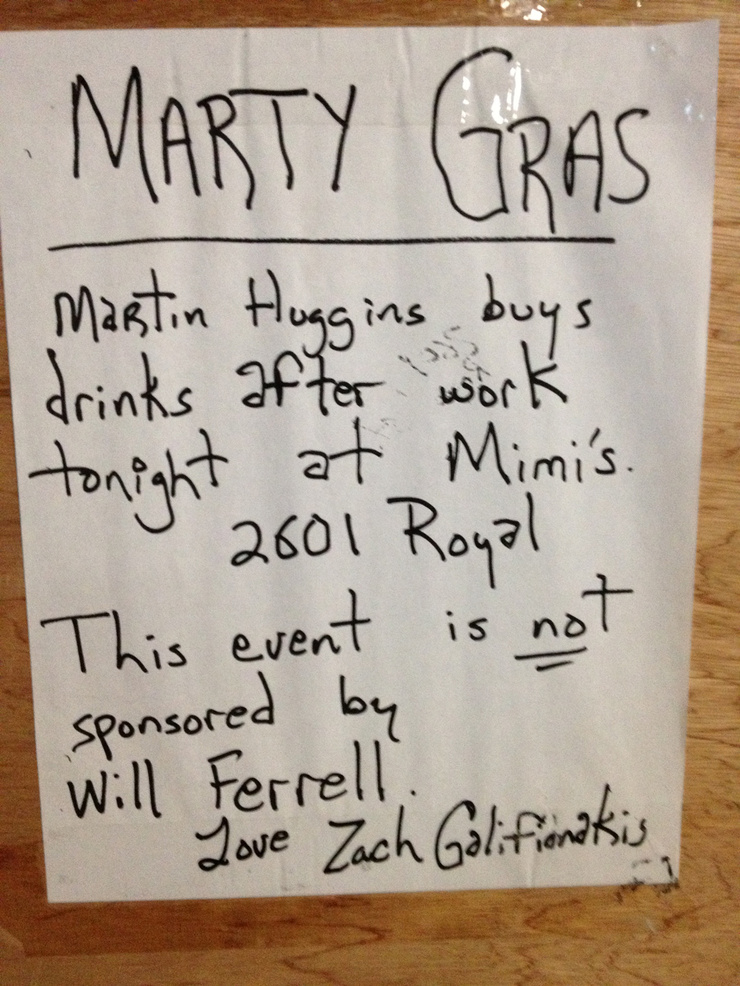 MARTY GRAS
Martin Huggins buys
drinks after work
tonight at Mimi's.
2601 Royal
This event is not
sponsored by
Will Ferrell.
Love Zach Galifianakis